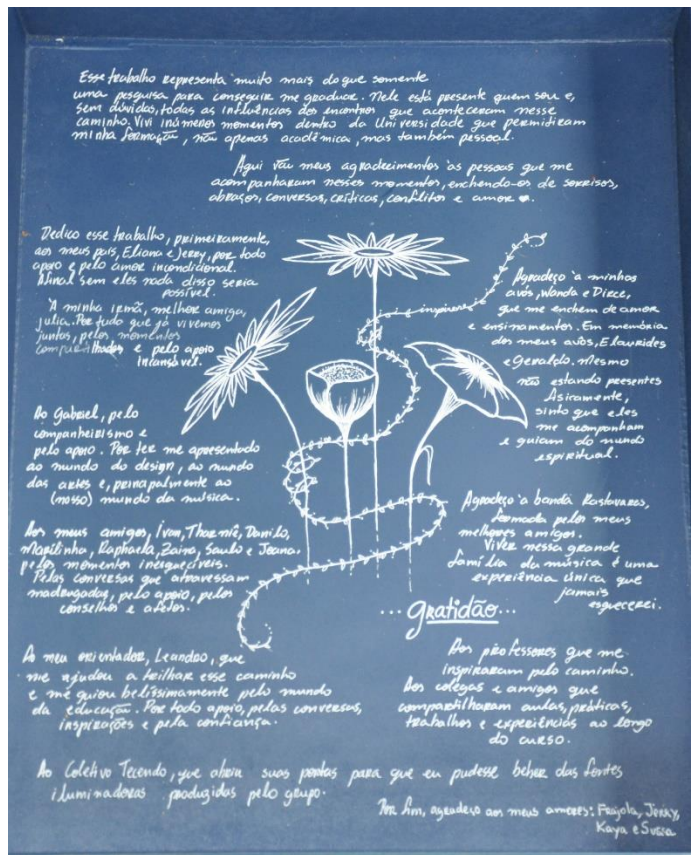 Esse trabalho representa muito mais do que somente
uma pesquisa para conseguir me graduar. Nele está presente quem sou e,
sem dúvidas, todas as influências dos encontros que aconteceram nesse
caminho. Vivi inúmeros momentos dentro da Universidade que permitiram
minha formação, não apenas acadêmica, mas também pessoal.
Aqui vão meus agradecimentos às pessoas que me
acompanharam nesses momentos, enchendo-os de sorrisos,
abraços, conversas, críticas, conflitos e amor ♥.
Dedico esse trabalho, primeiramente,
aos meus pais, Eliana e Jerry, por todo
apoio e pelo amor incondicional.
Afinal sem eles nada disso seria
possível.
À minha irmã, melhor amiga,
Julia. Por tudo que já vivemos
juntas, pelos momentos
compartilhados e pelo apoio
incansável.
Ao Gabriel, pelo
companheirismo e
pelo apoio. Por ter me apresentado
ao mundo do design, ao mundo
das artes e, principalmente ao
(nosso) mundo da música.
Aos meus amigos, Ívan, Tharmiê, Danilo,
Maritinha, Raphaela, Zaira, Saulo e Joana.
pelos momentos inesquecíveis.
Pelas conversas que atravessam
madrugadas, pelo apoio, pelos
conselhos e afetos.
Ao meu orientador, Leandro, que
me ajudou a trilhar esse caminho
e me guiou belíssimamente pelo mundo
da educação. Por todo apoio, pelas conversas,
inspirações e pela confiança.
inspirare
Agradeço à minhas
avós, Wanda e Dirce,
que me enchem de amor
e ensinamentos. Em memória
dos meus avôs, Elaurides
e Geraldo. Mesmo
não estando presentes
fisicamente,
sinto que eles
me acompanham
e guiam do mundo
espiritual.
Agradeço à banda Rastavares,
formada pelos meus
melhores amigos.
Viver nessa grande
família da música é uma
experiência única que
jamais
esquecerei.
... gratidão ...
Aos professores que me
inspiraram pelo caminho.
Aos colegas e amigos que
compartilharam aulas, práticas,
trabalhos e experiências ao longo
do curso.
Ao Coletivo Tecendo, que abriu suas portas para que eu pudesse beber das fontes
iluminadoras produzidas pelo grupo.
Por fim, agradeço aos meus amores: Frajola, Jerry,
Kaya e